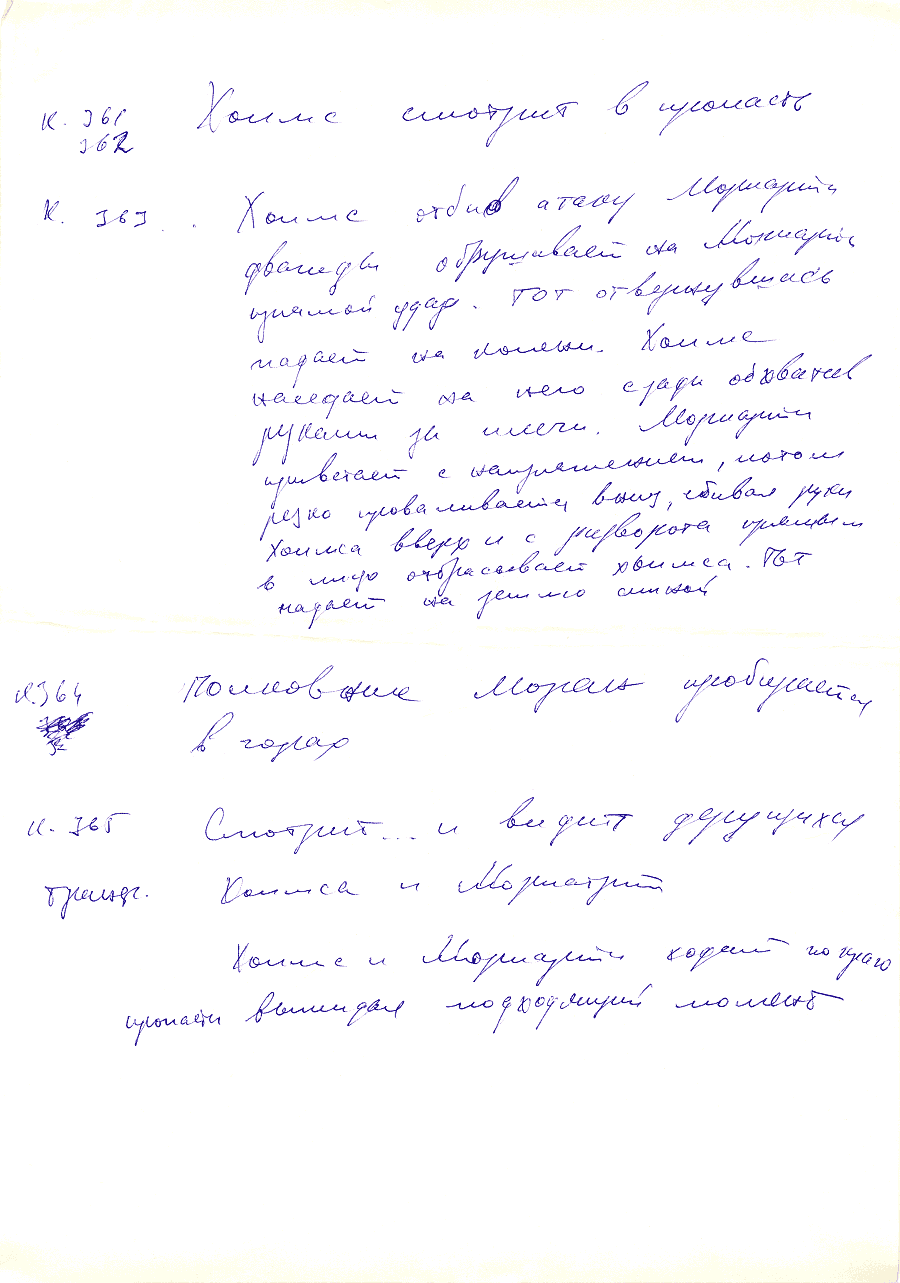 К. 361 Холмс смотрит в пропасть
362
К. 363. Холмс отбив атаку Мориарти
дважды обрушивает на Мориарти
прямой удар. Тот отвернувшись
падает на колени. Холмс
наседает на него сзади обхватив
руками за плечи. Мориарти
привстает с напряжением, потом
резко проваливается вниз, сбивая руки
Холмса вверх и с разворота прямым
в лицо отбрасывает Холмса. Тот
падает на землю спиной
К. 364 Полковник Моран пробирается
в горах
К. 365 Смотрит... и видит дерущихся
Холмса и Мориарти
Холмс и Мориарти ходят по краю
пропасти выжидая подходящий момент